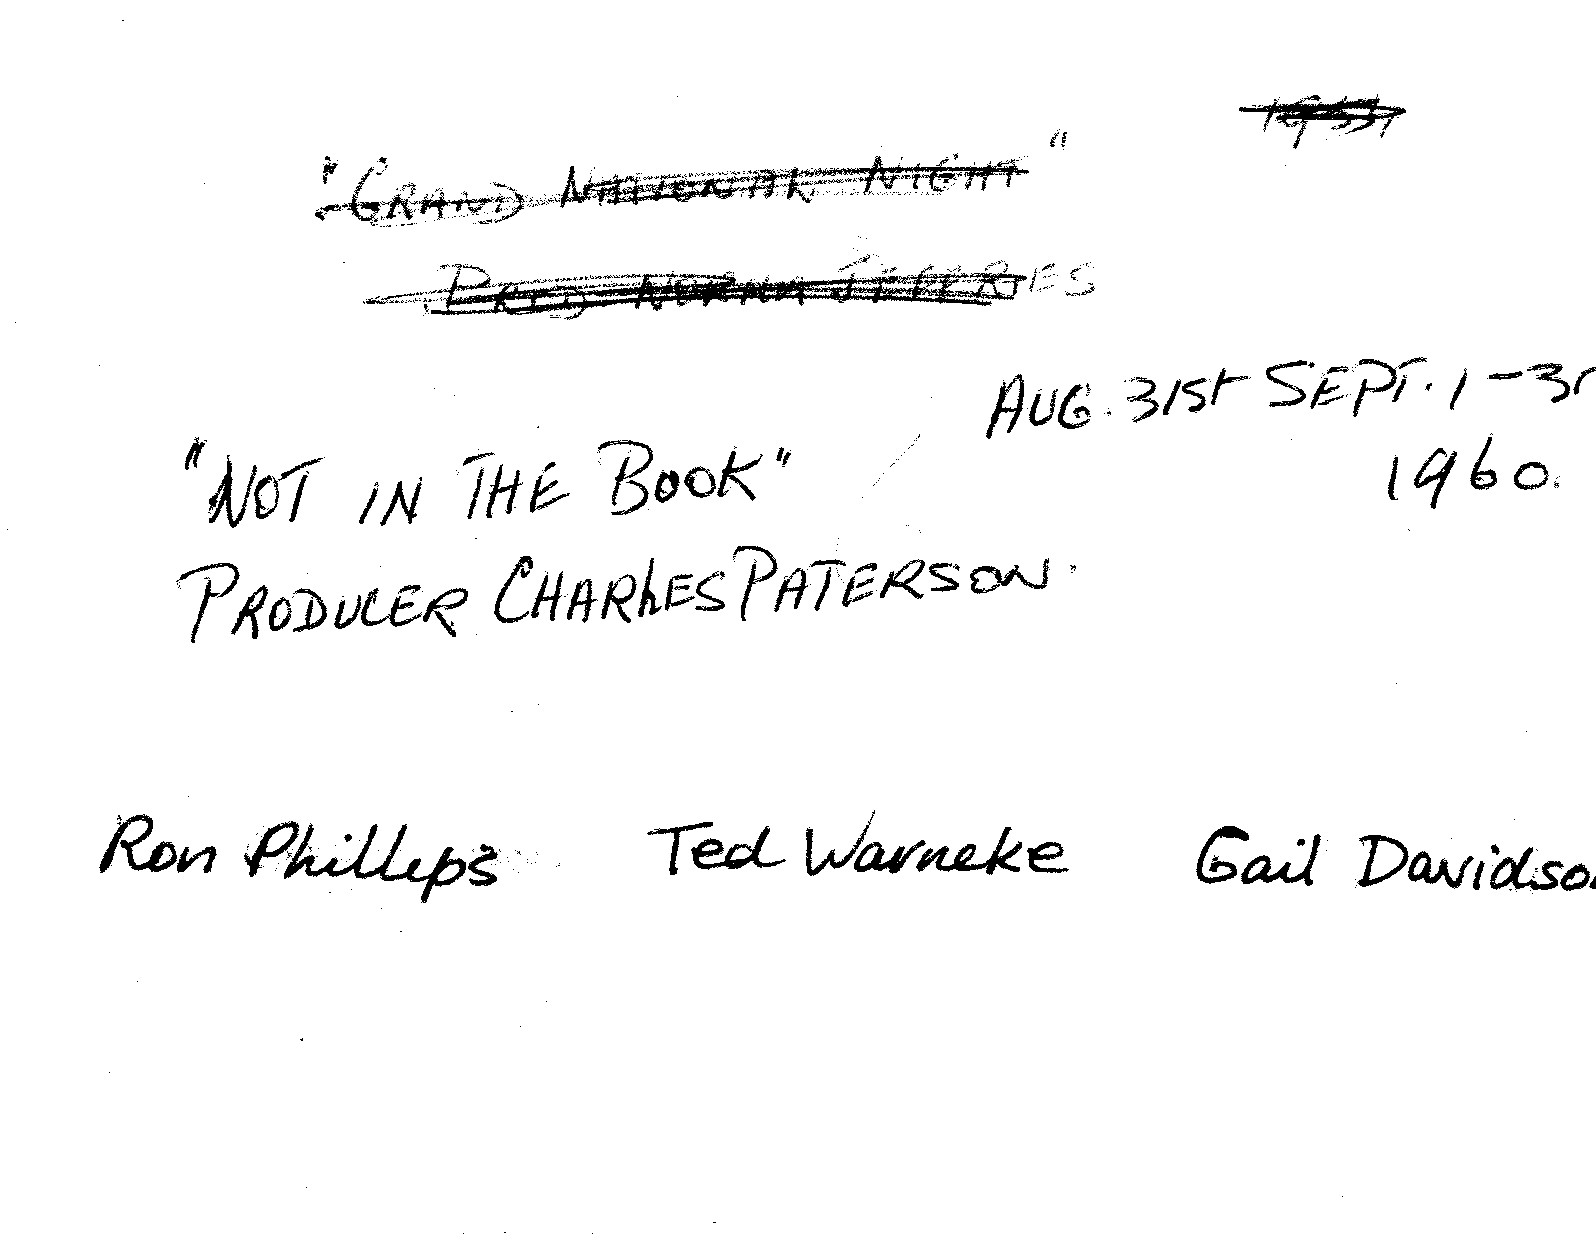 "GRAND NATIONAL NIGHT"
PROD. NORMA JEFFERIES
AUG. 31ST SEPT. 1-3r
1960.
"NOT IN THE BOOK"
PRODUCER CHARLES PATERSON.
Ron Phillips Ted Warneke Gail Davidson